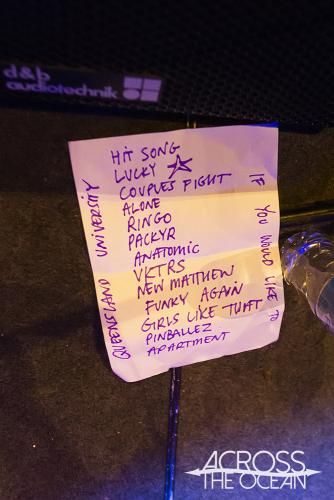 d&b
audiotechnik
HIT SONG
LUCKY ☆
COUPLES FIGHT
ALONE
RINGO
PACKYR
ANATOMIC
VKTRS
NEW MATTHEW
FUNKY AGAIN
GIRLS LIKE THAT
PINBALLEZ
APARTMENT
QUEENSLAND UNIVERSITY
IF YOU WOULD LIKE TO
ACROSS
THE OCEAN